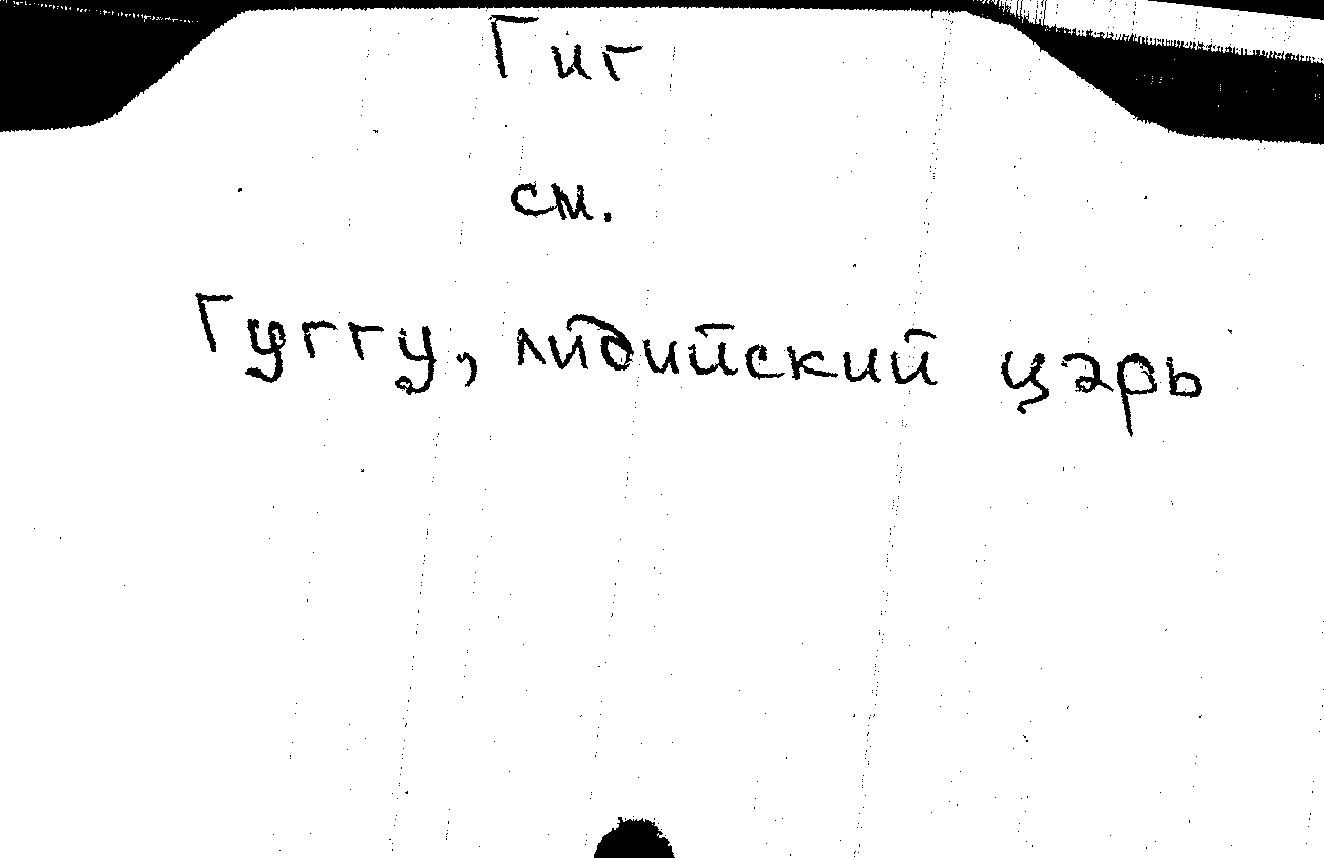 Гиг
см.
Гуггу, лидийский царь